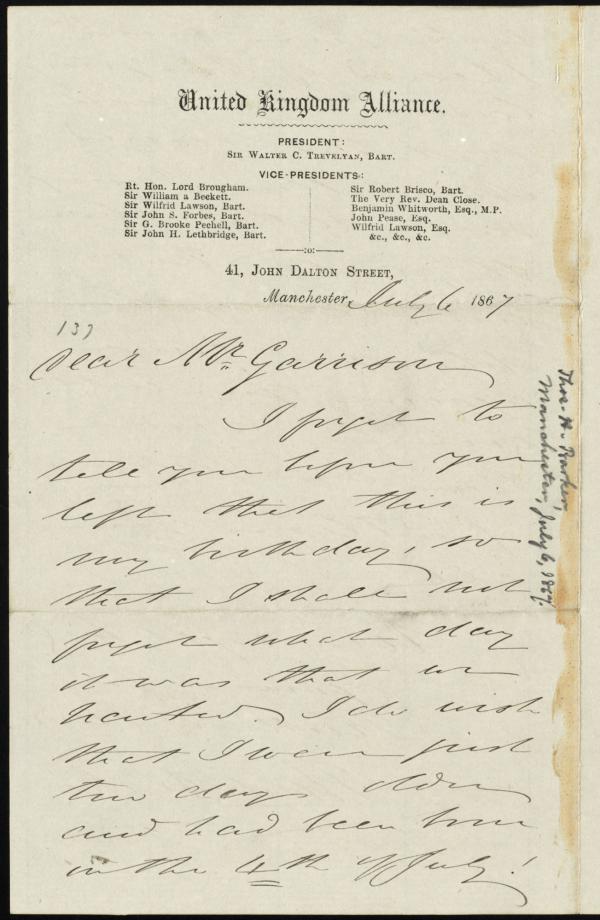 United Kingdom Alliance.
PRESIDENT:
SIR WALTER C. TREVELYAN, BART.
VICE-PRESIDENTS:
Rt. Hon. Lord Brougham.
Sir William a Beckett.
Sir Wilfrid Lawson, Bart.
Sir John S. Forbes, Bart.
Sir G. Brooke Pechell, Bart.
Sir John H. Lethbridge, Bart.
Sir Robert Brisco, Bart.
The Very Rev. Dean Close.
Benjamin Whitworth, Esq., M.P.
John Pease, Esq.
Wilfrid Lawson, Esq.
&c., &c., &c.
:o:
41, JOHN DALTON STREET,
Manchester, July 6 1867
137
Dear Mr. Garrison
I forgot to
tell you before you
left that this is
my birthday, so
that I shall not
forget what day
it was that we
parted. I do wish
that I were just
two days older
and had been born
on the 4th of July!
Thos. H. Barker,
Manchester, July 6, 1867.